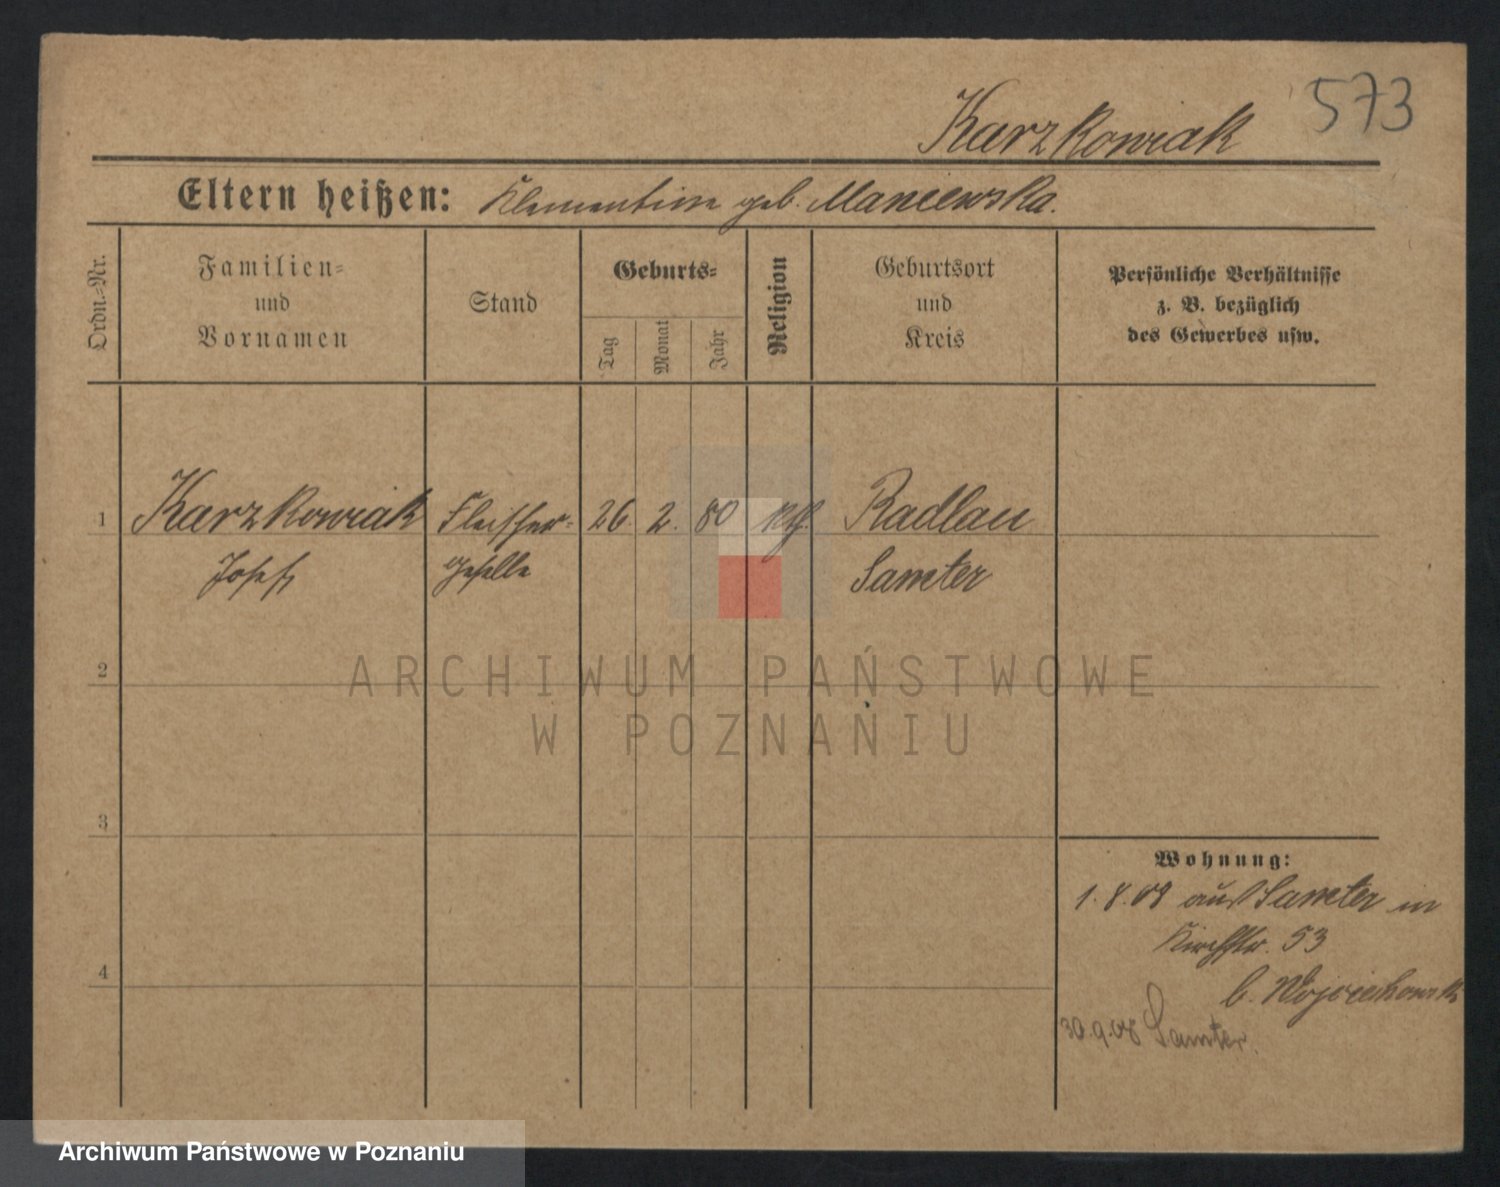 573
Karzkowiak
Eltern heißen: Klementine geb. Maniewska.
Ordn.-Nr.
Familien-
und
Vornamen
Stand
Geburts-
Tag
Monat
Jahr
Religion
Geburtsort
und
Kreis
Persönliche Verhältnisse
z. B. bezüglich
des Gewerbes usw.
1 Karzkowiak Fleischer- 26. 2. 80 kth. Radlau
Josef geselle Samter
2
3
4
Wohnung:
1.8.08 aus Samter in
Kirchstr. 53
b. Wojciechowski
30.9.08 Samter.
ARCHIWUM PAŃSTWOWE
W POZNANIU
Archiwum Państwowe w Poznaniu